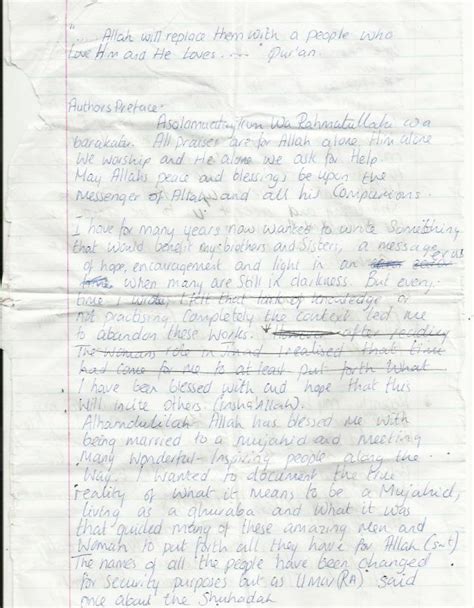 "....
Allah will replace them with a people who
love Him and He loves....." Qur'an.
Authors Preface.
Asalamualaykum Wa Rahmatullahi wa
barakatu. All praises are for Allah alone Him alone
we worship and He alone we ask for Help.
May Allahs peace and blessings be upon the
messenger of Allah and all his Companions.
I have for many years now wanted to write Something
that would benefit my brothers and Sisters, a message
of hope, encouragement and light in an era us
when many are still in darkness. But every
time I wrote, I felt that lack of knowledge or
not practising completely the context led me
to abandon these works. after residing
The Womans role in Jihad I realised that time
had come for me to at least put forth what
I have been blessed with and hope that this
will invite others (insha'Allah).
Alhamdulilah Allah has blessed me with
being married to a mujahid and meeting
many wonderful-Inspiring people along the
way. I wanted to document the true
reality of what it means to be a Mujahid,
living as a ghuraba and what it was
that guided many of these amazing Men and
Woman to put forth all they have for Allah (s-t)
The names of all the people have been changed
for security purposes but as Umar (RA) said
once about the Shuhadah